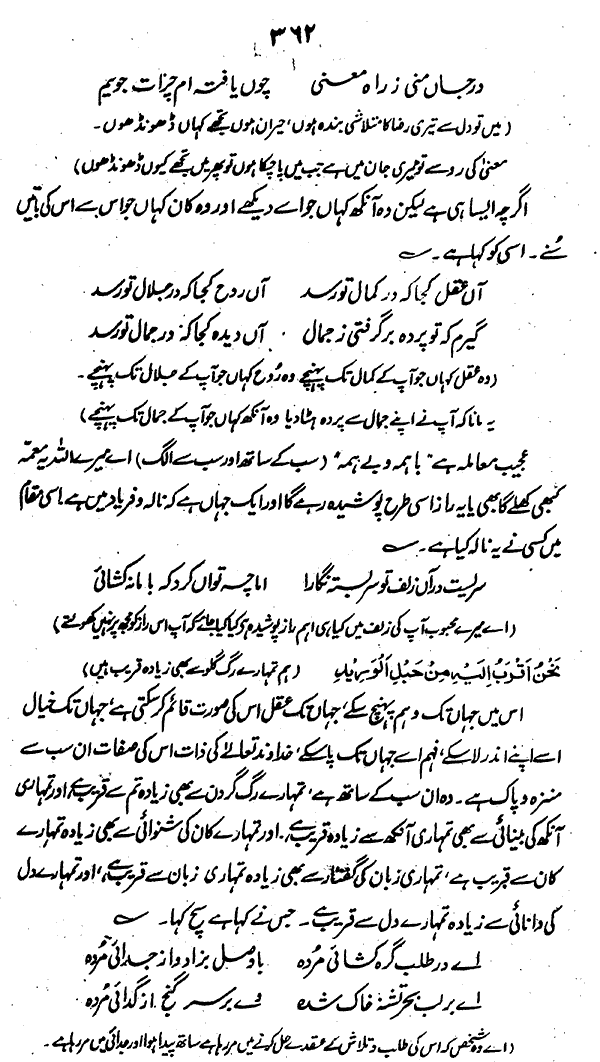 ۳۶۲
در جاں منی ز راہ معنی چوں یافتہ ام چرات جویم
(میں تو دل سے تیری رضا کا متلاشی بندہ ہوں، حیران ہوں تجھے کہاں ڈھونڈھوں۔
معنیٰ کی رو سے تو میری جان میں ہے جب میں پا چکا ہوں تو پھر میں تجھے کیوں ڈھونڈھوں)
اگرچہ ایسا ہی ہے لیکن وہ آنکھ کہاں جو اسے دیکھے اور وہ کان کہاں جو اس سے اس کی باتیں
سُنے۔ اسی کو کہا ہے۔ ؎
آں عقل کجا کہ در کمال تو رسد آں روح کجا کہ در جلال تو رسد
گیرم کہ تو پردہ برگرفتی ز جمال آں دیدہ کجا کہ در جمال تو رسد
(وہ عقل کہاں جو آپ کے کمال تک پہنچے وہ رُوح کہاں جو آپ کے جلال تک پہنچے۔
یہ مانا کہ آپ نے اپنے جمال سے پردہ ہٹا دیا وہ آنکھ کہاں جو آپ کے جمال تک پہنچے)
عجیب معاملہ ہے "باہمہ و بے ہمہ" (سب کے ساتھ اور سب سے الگ) اے میرے اللہ یہ معمّہ
کبھی کھلے گا بھی یا یہ راز اسی طرح پوشیدہ رہے گا اور ایک جہاں ہے کہ نالہ و فریاد میں ہے اسی مقام
میں کسی نے یہ نالہ کیا ہے۔ ؎
سریست در آں زلف تو سر بستہ نگارا اما چہ تواں کرد کہ با ما نہ کشائی
(اے میرے محبوب آپ کی زلف میں کیا ہی اہم راز پوشیدہ ہے کیا کیا جائے کہ آپ اس راز کو مجھ پر نہیں کھولتے)
نَحْنُ اَقْرَبُ اِلَیْہِ مِنْ حَبْلِ الْوَرِیْدِ (ہم تمہارے رگ گلو سے بھی زیادہ قریب ہیں)
اس میں جہاں تک وہم پہنچ سکے، جہاں تک عقل اس کی صورت قائم کر سکتی ہے، جہاں تک خیال
اسے اپنے اندر لا سکے، فہم اسے جہاں تک پا سکے، خداوند تعالےٰ کی ذات اس کی صفات ان سب سے
منزہ و پاک ہے۔ وہ ان سب کے ساتھ ہے، تمہارے رگ گردن سے بھی زیادہ تم سے قریب ہے، اور تمہاری
آنکھ کی بینائی سے بھی تمہاری آنکھ سے زیادہ قریب ہے، اور تمہارے کان کی شنوائی سے بھی زیادہ تمہارے
کان سے قریب ہے، تمہاری زبان کی گفتار سے بھی زیادہ تمہاری زبان سے قریب ہے، اور تمہارے دل
کی دانائی سے زیادہ تمہارے دل سے قریب ہے۔ جس نے کہا ہے سچ کہا۔ ؎
اے در طلب گرہ کشائی مُردہ با وصل بزاد و از جدائی مُردہ
اے بر لب بحر تشنہ خاک شدہ وے بر سر گنج از گدائی مُردہ
(اے وہ شخص کہ اس کی طلب و تلاش کے عقدے حل کرنے میں مر رہا ہے ساتھ پیدا ہوا اور جدائی میں مر رہا ہے۔